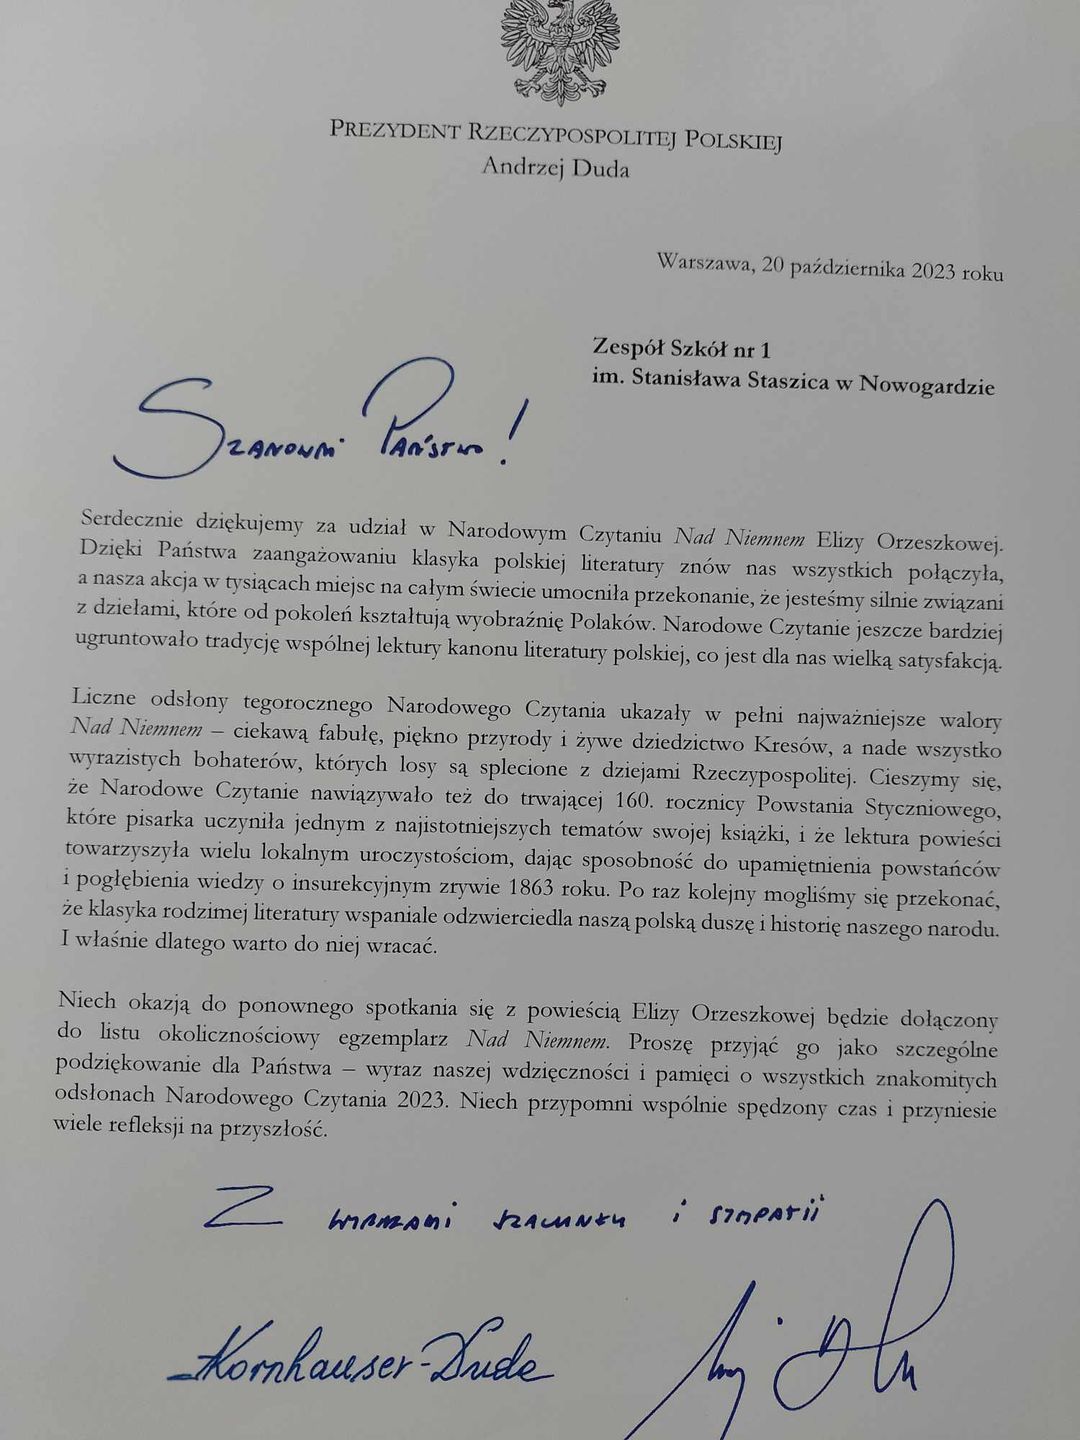 PREZYDENT RZECZYPOSPOLITEJ POLSKIEJ
Andrzej Duda
Warszawa, 20 października 2023 roku
Zespół Szkół nr 1
im. Stanisława Staszica w Nowogardzie
Szanowni Państwo!
Serdecznie dziękujemy za udział w Narodowym Czytaniu Nad Niemnem Elizy Orzeszkowej.
Dzięki Państwa zaangażowaniu klasyka polskiej literatury znów nas wszystkich połączyła,
a nasza akcja w tysiącach miejsc na całym świecie umocniła przekonanie, że jesteśmy silnie związani
z dziełami, które od pokoleń kształtują wyobraźnię Polaków. Narodowe Czytanie jeszcze bardziej
ugruntowało tradycję wspólnej lektury kanonu literatury polskiej, co jest dla nas wielką satysfakcją.
Liczne odsłony tegorocznego Narodowego Czytania ukazały w pełni najważniejsze walory
Nad Niemnem – ciekawą fabułę, piękno przyrody i żywe dziedzictwo Kresów, a nade wszystko
wyrazistych bohaterów, których losy są splecione z dziejami Rzeczypospolitej. Cieszymy się,
że Narodowe Czytanie nawiązywało też do trwającej 160. rocznicy Powstania Styczniowego,
które pisarka uczyniła jednym z najistotniejszych tematów swojej książki, i że lektura powieści
towarzyszyła wielu lokalnym uroczystościom, dając sposobność do upamiętnienia powstańców
i pogłębienia wiedzy o insurekcyjnym zrywie 1863 roku. Po raz kolejny mogliśmy się przekonać,
że klasyka rodzimej literatury wspaniale odzwierciedla naszą polską duszę i historię naszego narodu.
I właśnie dlatego warto do niej wracać.
Niech okazją do ponownego spotkania się z powieścią Elizy Orzeszkowej będzie dołączony
do listu okolicznościowy egzemplarz Nad Niemnem. Proszę przyjąć go jako szczególne
podziękowanie dla Państwa – wyraz naszej wdzięczności i pamięci o wszystkich znakomitych
odsłonach Narodowego Czytania 2023. Niech przypomni wspólnie spędzony czas i przyniesie
wiele refleksji na przyszłość.
Z wyrazami szacunku i sympatii
Kornhauser-Duda